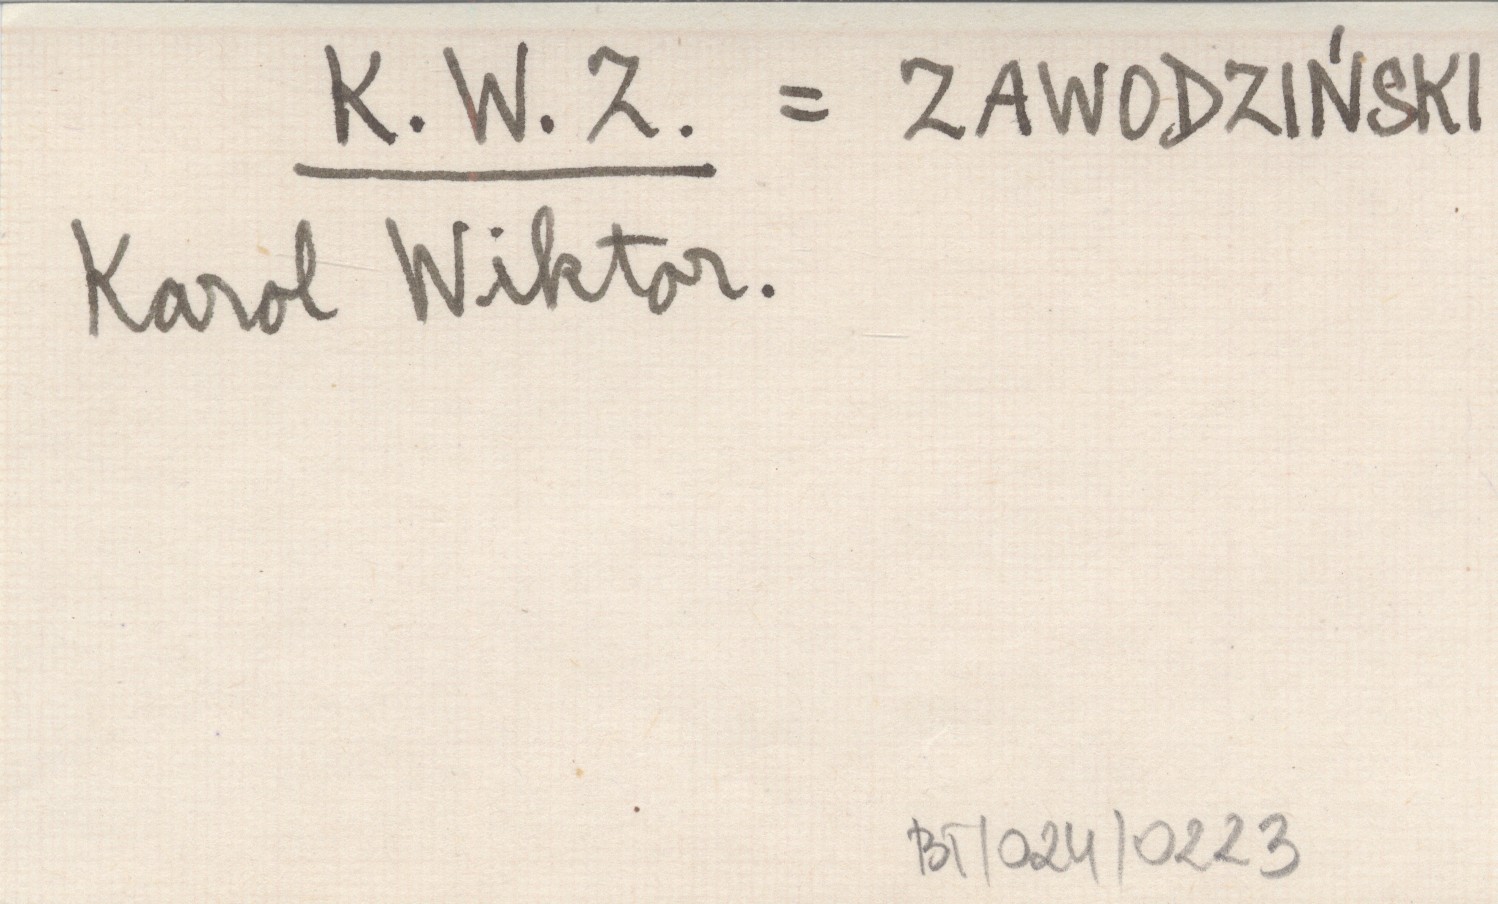 K. W. Z. = ZAWODZIŃSKI
Karol Wiktor.
BT/024/0223